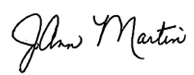 JoAnn Martin